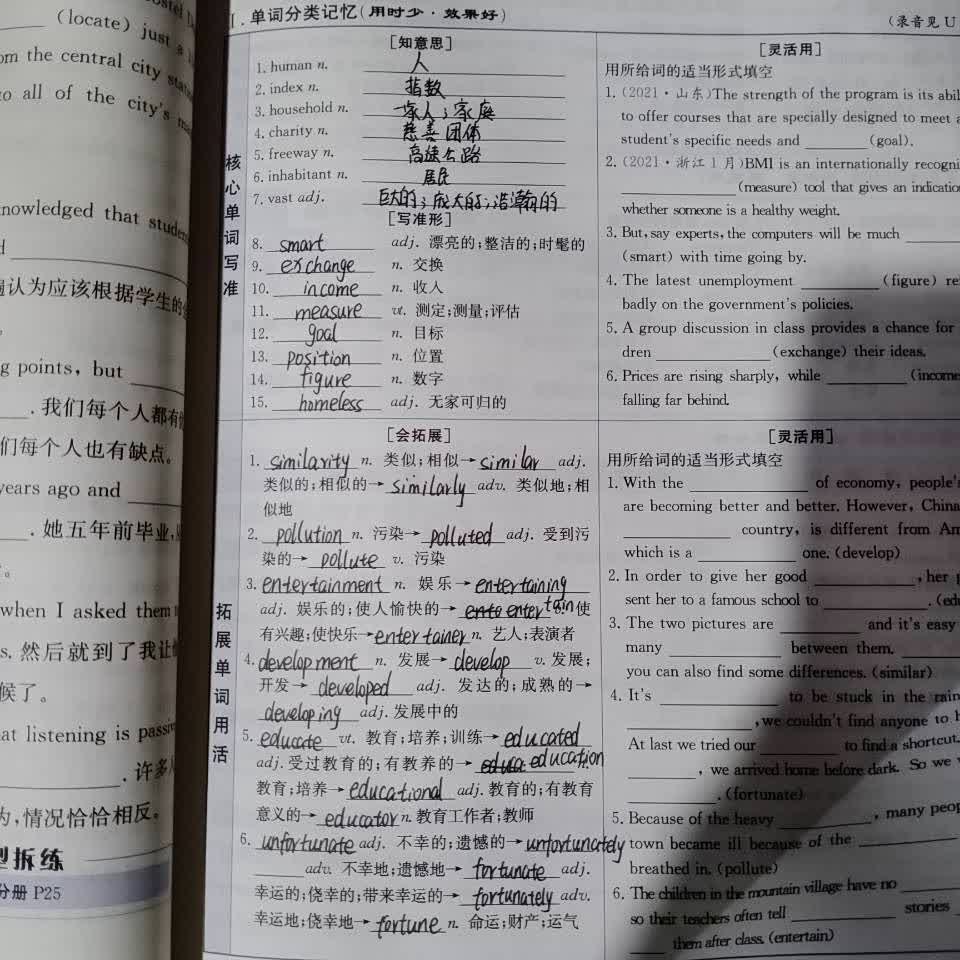 (locate) just a
om the central city
to all of the city's
nowledged that
遍认为应该根据学生的
g points, but
.我们每个人都有
们每个人也有缺点。
years ago and
.她五年前毕业,
when I asked them
s. 然后就到了我让
候了。
at listening is passive
.许多
为,情况恰恰相反。
型拆练
分册 P25
Ⅰ.单词分类记忆(用时少·效果好)
(录音见 U
核心单词写准
[知意思]
1. human n. 人
2. index n. 指数
3. household n. 一家人;家庭
4. charity n. 慈善团体
5. freeway n. 高速公路
6. inhabitant n. 居民
7. vast adj. 巨大的;庞大的;浩瀚的
[写准形]
8. smart adj. 漂亮的;整洁的;时髦的
9. exchange n. 交换
10. income n. 收入
11. measure vt. 测定;测量;评估
12. goal n. 目标
13. position n. 位置
14. figure n. 数字
15. homeless adj. 无家可归的
[灵活用]
用所给词的适当形式填空
1. (2021·山东)The strength of the program is its
to offer courses that are specially designed to meet a
student's specific needs and (goal).
2. (2021·浙江1月)BMI is an internationally
(measure) tool that gives an indication
whether someone is a healthy weight.
3. But, say experts, the computers will be much
(smart) with time going by.
4. The latest unemployment (figure)
badly on the government's policies.
5. A group discussion in class provides a chance for
dren (exchange) their ideas.
6. Prices are rising sharply, while (income
falling far behind.
拓展单词用活
[会拓展]
1. similarity n. 类似;相似→similar adj.
类似的;相似的→similarly adv. 类似地;相
似地
2. pollution n. 污染→polluted adj. 受到污
染的→pollute v. 污染
3. entertainment n. 娱乐→entertaining
adj. 娱乐的;使人愉快的→entertain v. 使
有兴趣;使快乐→entertainer n. 艺人;表演者
4. development n. 发展→develop v. 发展;
开发→developed adj. 发达的;成熟的→
developing adj. 发展中的
5. educate vt. 教育;培养;训练→educated
adj. 受过教育的;有教养的→education
教育;培养→educational adj. 教育的;有教育
意义的→educator n. 教育工作者;教师
6. unfortunate adj. 不幸的;遗憾的→unfortunately
adv. 不幸地;遗憾地→fortunate adj.
幸运的;侥幸的;带来幸运的→fortunately adv.
幸运地;侥幸地→fortune n. 命运;财产;运气
[灵活用]
用所给词的适当形式填空
1. With the of economy, people's
are becoming better and better. However, China
country, is different from
which is a one. (develop)
2. In order to give her good , her
sent her to a famous school to .
3. The two pictures are and it's easy
many between them.
you can also find some differences. (similar)
4. It's to be stuck in the rain
, we couldn't find anyone to
At last we tried our to find a shortcut.
, we arrived home before dark. So we
. (fortunate)
5. Because of the heavy , many
town became ill because of the
breathed in. (pollute)
6. The children in the mountain village have no
so their teachers often tell stories
them after class. (entertain)